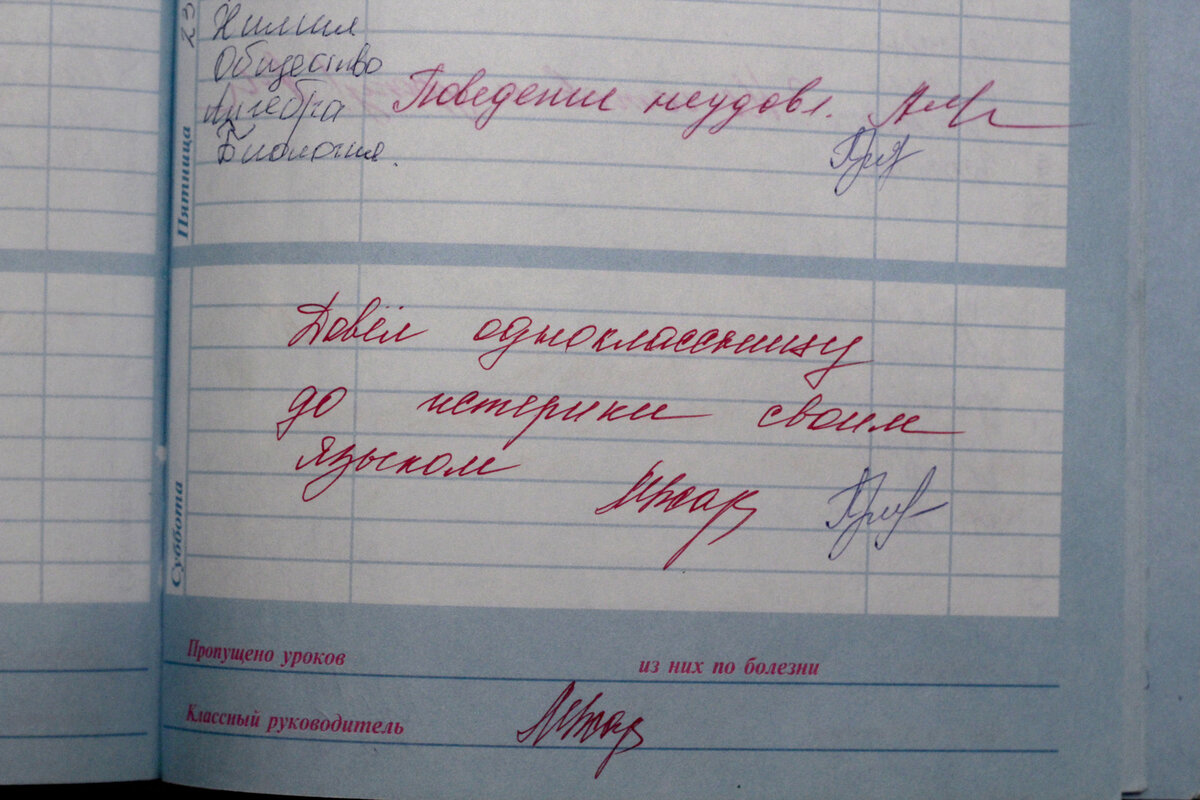 23
Химия
Общество
Алгебра Поведение неудовл.
Биология.
Пятница
Довёл одноклассницу
до истерики своим
языком
Суббота
Пропущено уроков из них по болезни
Классный руководитель